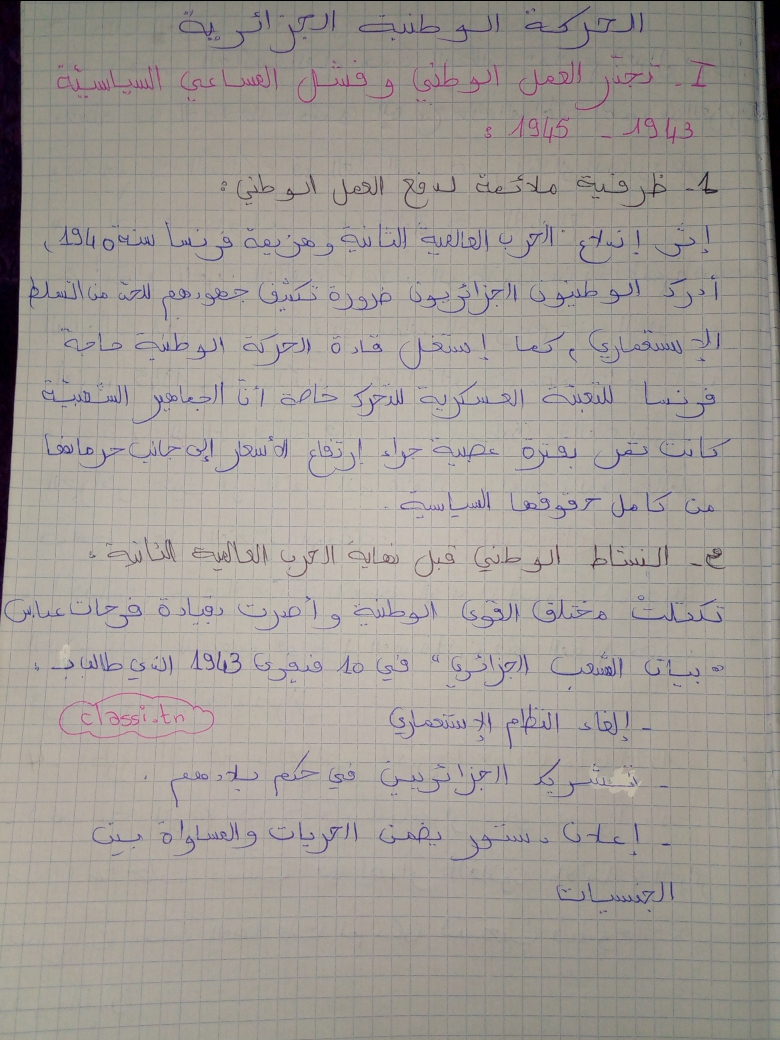 الحركة الوطنية الجزائرية
I - تجذر العمل الوطني و فشل المساعي السياسيّة
1943 - 1945 :
1- ظرفية ملائمة لدفع العمل الوطني :
إثر إندلاع الحرب العالمية الثانية وهزيمة فرنسا سنة 1940 ،
أدرك الوطنيون الجزائريون ضرورة تكثيف جهودهم للحد من التسلط
الإستعماري ، كما إستغل قادة الحركة الوطنية حاجة
فرنسا للتعبئة العسكرية للتحرك خاصة أنّ الجماهير الشعبيّة
كانت تمر بفترة عصيبة جراء إرتفاع الأسعار إلى جانب حرمانها
من كامل حقوقها السياسية .
2- النشاط الوطني قبل نهاية الحرب العالمية الثانية :
تكتلتْ مختلف القوى الوطنية و أصدرت بقيادة فرحات عباس
"بيان الشعب الجزائري" في 10 فيفري 1943 الذي طالب بـ :
- إلغاء النظام الإستعماري
classi.tn
- تشريك الجزائريين في حكم بلادهم .
- إعلان دستور يضمن الحريات والمساواة بين
الجنسيات